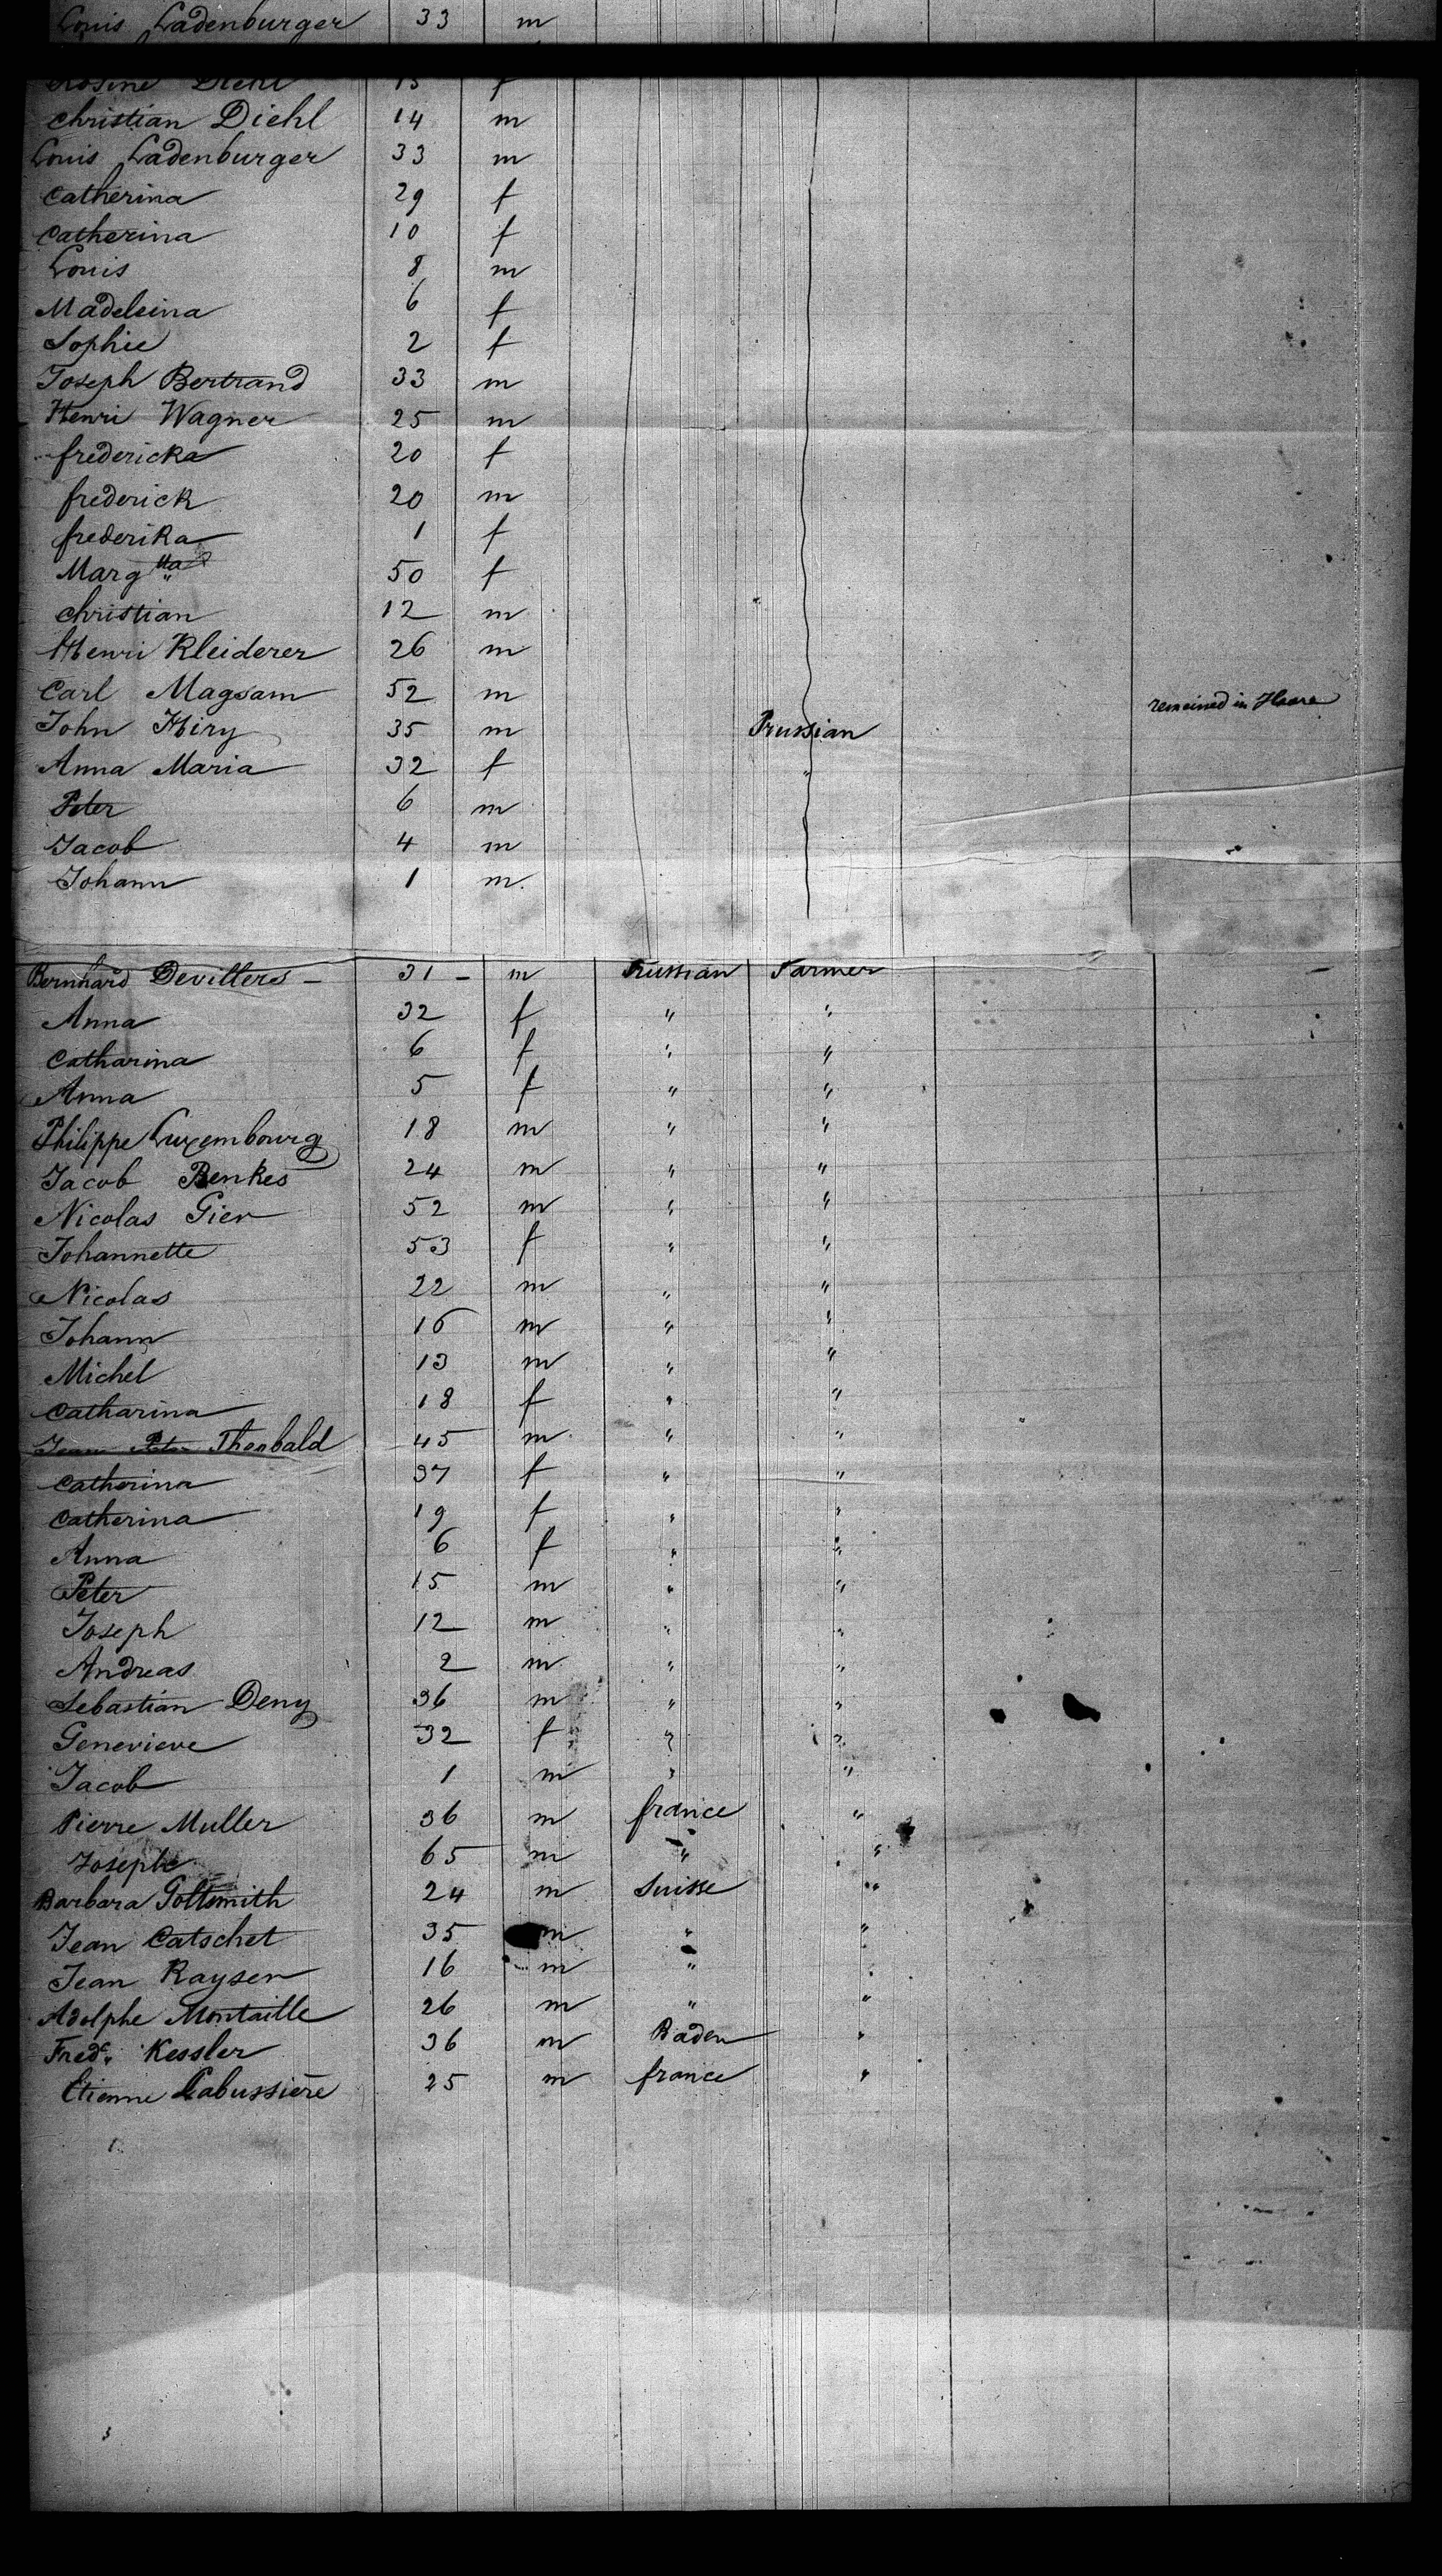 Louis Ladenburger 33 m
Rosine Diehl 15 f
Christian Diehl 14 m
Louis Ladenburger 33 m
Catherina 29 f
Catherina 10 f
Louis 8 m
Madeleina 6 f
Sophie 2 f
Joseph Bertrand 33 m
Henri Wagner 25 m
fredericka 20 f
frederick 20 m
frederika 1 f
Marg tta 50 f
Christian 12 m
Henri Kleiderer 26 m
Carl Magsam 52 m remained in
John Hiry 35 m Prussian
Anna Maria 32 f "
Peter 6 m
Jacob 4 m
Johann 1 m
Bernhard Devillers – 31 – m Prussian Farmer
Anna 32 f " "
Catharina 6 f " "
Anna 5 f " "
Philippe Luxembourg 18 m " "
Jacob Benkes 24 m " "
Nicolas Gier 52 m " "
Johannette 53 f " "
Nicolas 22 m " "
Johann 16 m " "
Michel 13 m " "
Catharina 18 f " "
Jean Peter Theobald 45 m " "
Catherina 37 f " "
Catherina 19 f " "
Anna 6 f " "
Peter 15 m " "
Joseph 12 m " "
Andreas 2 m " "
Sebastian Deny 36 m " "
Genevieve 32 f " "
Jacob 1 m " "
Pierre Muller 36 m france "
Joseph 65 m " "
Barbara Goltsmith 24 m Suisse "
Jean Catschet 35 m " "
Jean Kayser 16 m " "
Adolphe Montaille 26 m " "
Fredc. Kessler 36 m Baden "
Etienne Labussiere 25 m france "